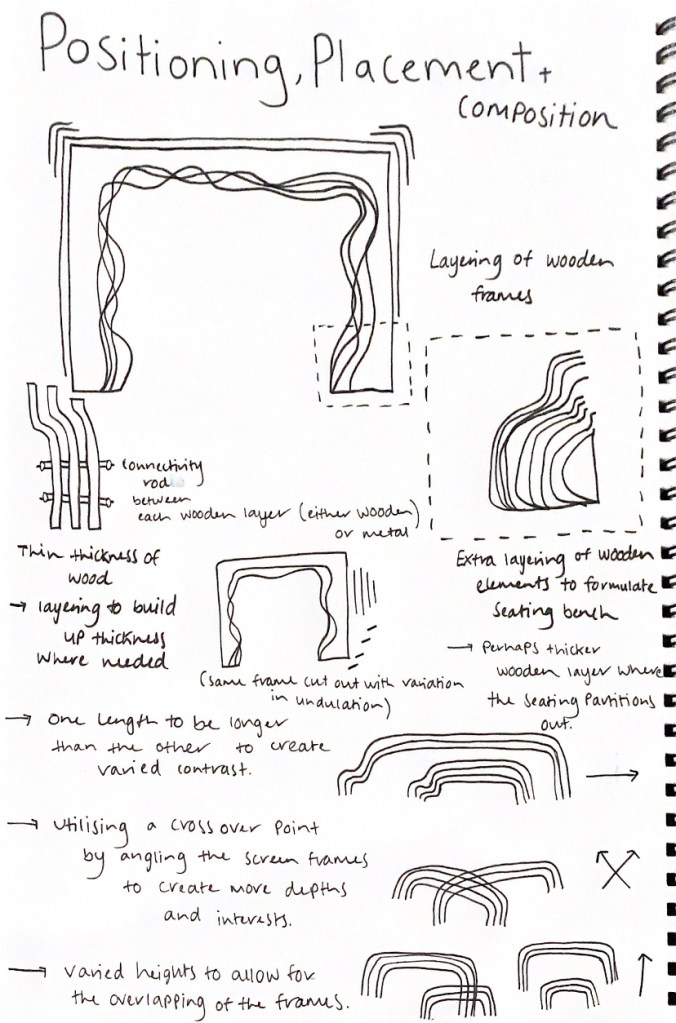 Positioning, Placement +
Composition
Layering of wooden
frames
Connectivity
rod
between
each wooden layer (either wooden)
or metal
Thin thickness of
wood
→ layering to build
up thickness
where needed
(same frame cut out with variation
in undulation)
Extra layering of wooden
elements to formulate
seating bench
→ Perhaps thicker
wooden layer where
the seating partitions
out.
→ One length to be longer
than the other to create
varied contrast.
→ Utilising a cross over point
by angling the screen frames
to create more depths
and interests.
→ Varied heights to allow for
the overlapping of the frames.